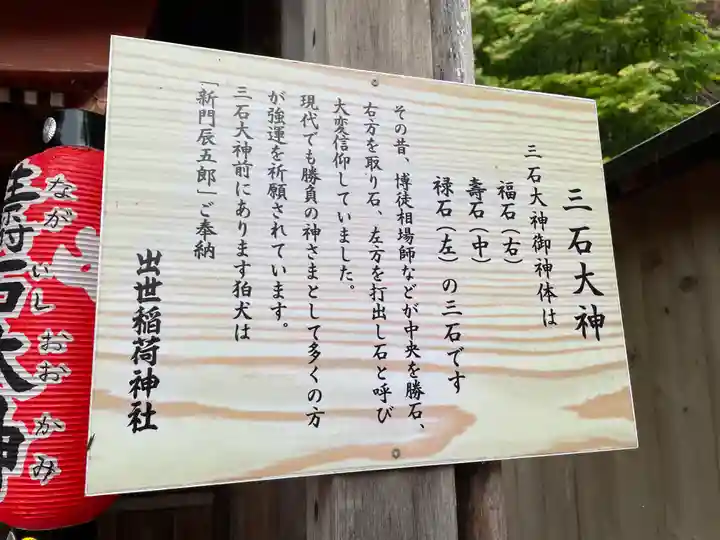 三石大神
三石大神御神体は
福石(右)
壽石(中)
禄石(左)の三石です
その昔、博徒相場師などが中央を勝石、
右方を取り石、左方を打出し石と呼び
大変信仰していました。
現代でも勝負の神さまとして多くの方
が強運を祈願されています。
三石大神前にあります狛犬は
「新門辰五郎」ご奉納
出世稲荷神社
石大神
ながいしおおかみ